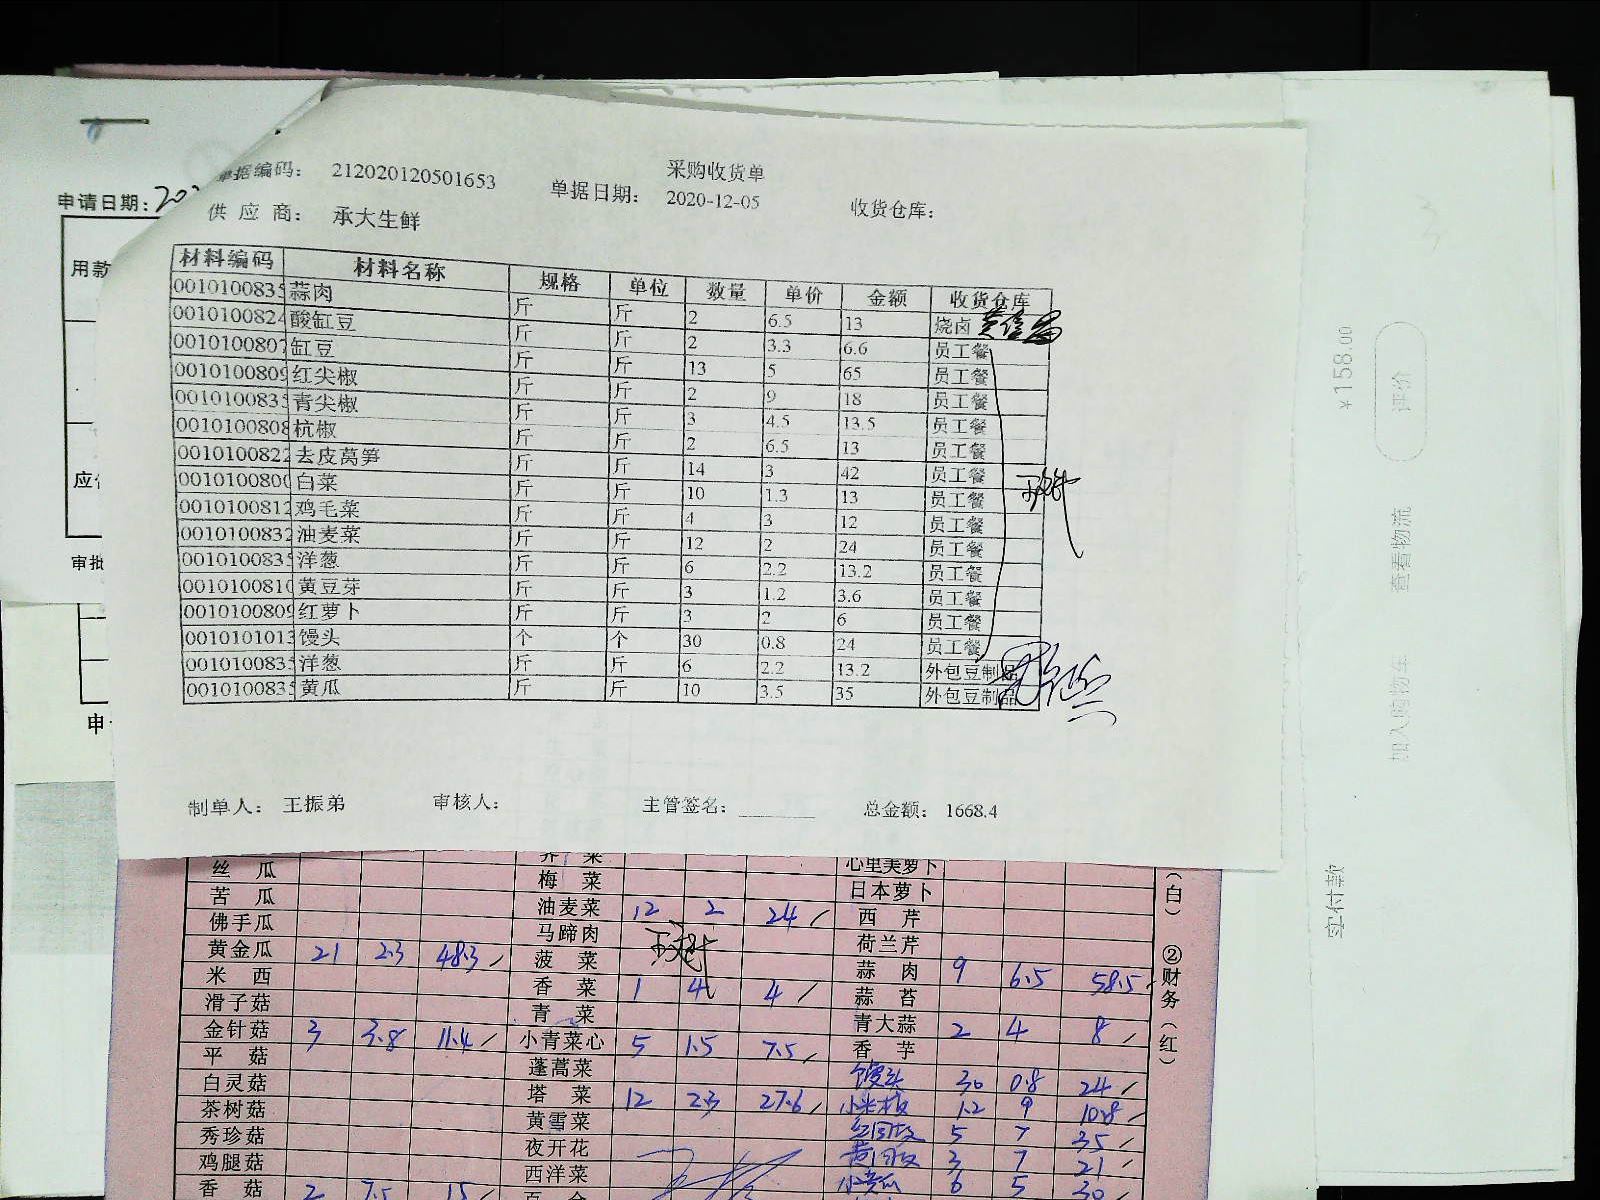 采购收货单
单据编码: 212020120501653 单据日期: 2020-12-05 收货仓库:
供 应 商: 承大生鲜
材料编码 材料名称 规格 单位 数量 单价 金额 收货仓库
0010100835 蒜肉 斤 斤 2 6.5 13 烧卤
0010100824 酸缸豆 斤 斤 2 3.3 6.6 员工餐
0010100807 缸豆 斤 斤 13 5 65 员工餐
0010100809 红尖椒 斤 斤 2 9 18 员工餐
0010100835 青尖椒 斤 斤 3 4.5 13.5 员工餐
0010100808 杭椒 斤 斤 2 6.5 13 员工餐
0010100822 去皮莴笋 斤 斤 14 3 42 员工餐
0010100800 白菜 斤 斤 10 1.3 13 员工餐
0010100812 鸡毛菜 斤 斤 4 3 12 员工餐
0010100832 油麦菜 斤 斤 12 2 24 员工餐
0010100835 洋葱 斤 斤 6 2.2 13.2 员工餐
0010100810 黄豆芽 斤 斤 3 1.2 3.6 员工餐
0010100809 红萝卜 斤 斤 3 2 6 员工餐
0010101013 馒头 个 个 30 0.8 24 员工餐
0010100835 洋葱 斤 斤 6 2.2 13.2 外包豆制品
0010100835 黄瓜 斤 斤 10 3.5 35 外包豆制品
制单人: 王振弟 审核人: 主管签名: 总金额: 1668.4
申请日期:
用款
应
审批
申
丝 瓜 梅 菜 心里美萝卜
苦 瓜 油麦菜 12 2 24 日本萝卜
佛手瓜 马蹄肉 西 芹
黄金瓜 21 2.3 48.3 菠 菜 荷兰芹
米 西 香 菜 1 4 4 蒜 肉 9 6.5 58.5
滑子菇 青 菜 蒜 苔
金针菇 3 3.8 11.4 小青菜心 5 1.5 7.5 青大蒜 2 4 8
平 菇 蓬蒿菜 香 芋
白灵菇 塔 菜 12 2.3 27.6 馒头 30 0.8 24
茶树菇 黄雪菜 小米椒 1.2 9 10.8
秀珍菇 夜开花 5 7 35
鸡腿菇 西洋菜 3 7 21
香 菇 2 7.5 15 百 合 6 5 30
(白) ②财务(红)
¥158.00
评价
查看物流
加入购物车
实付款